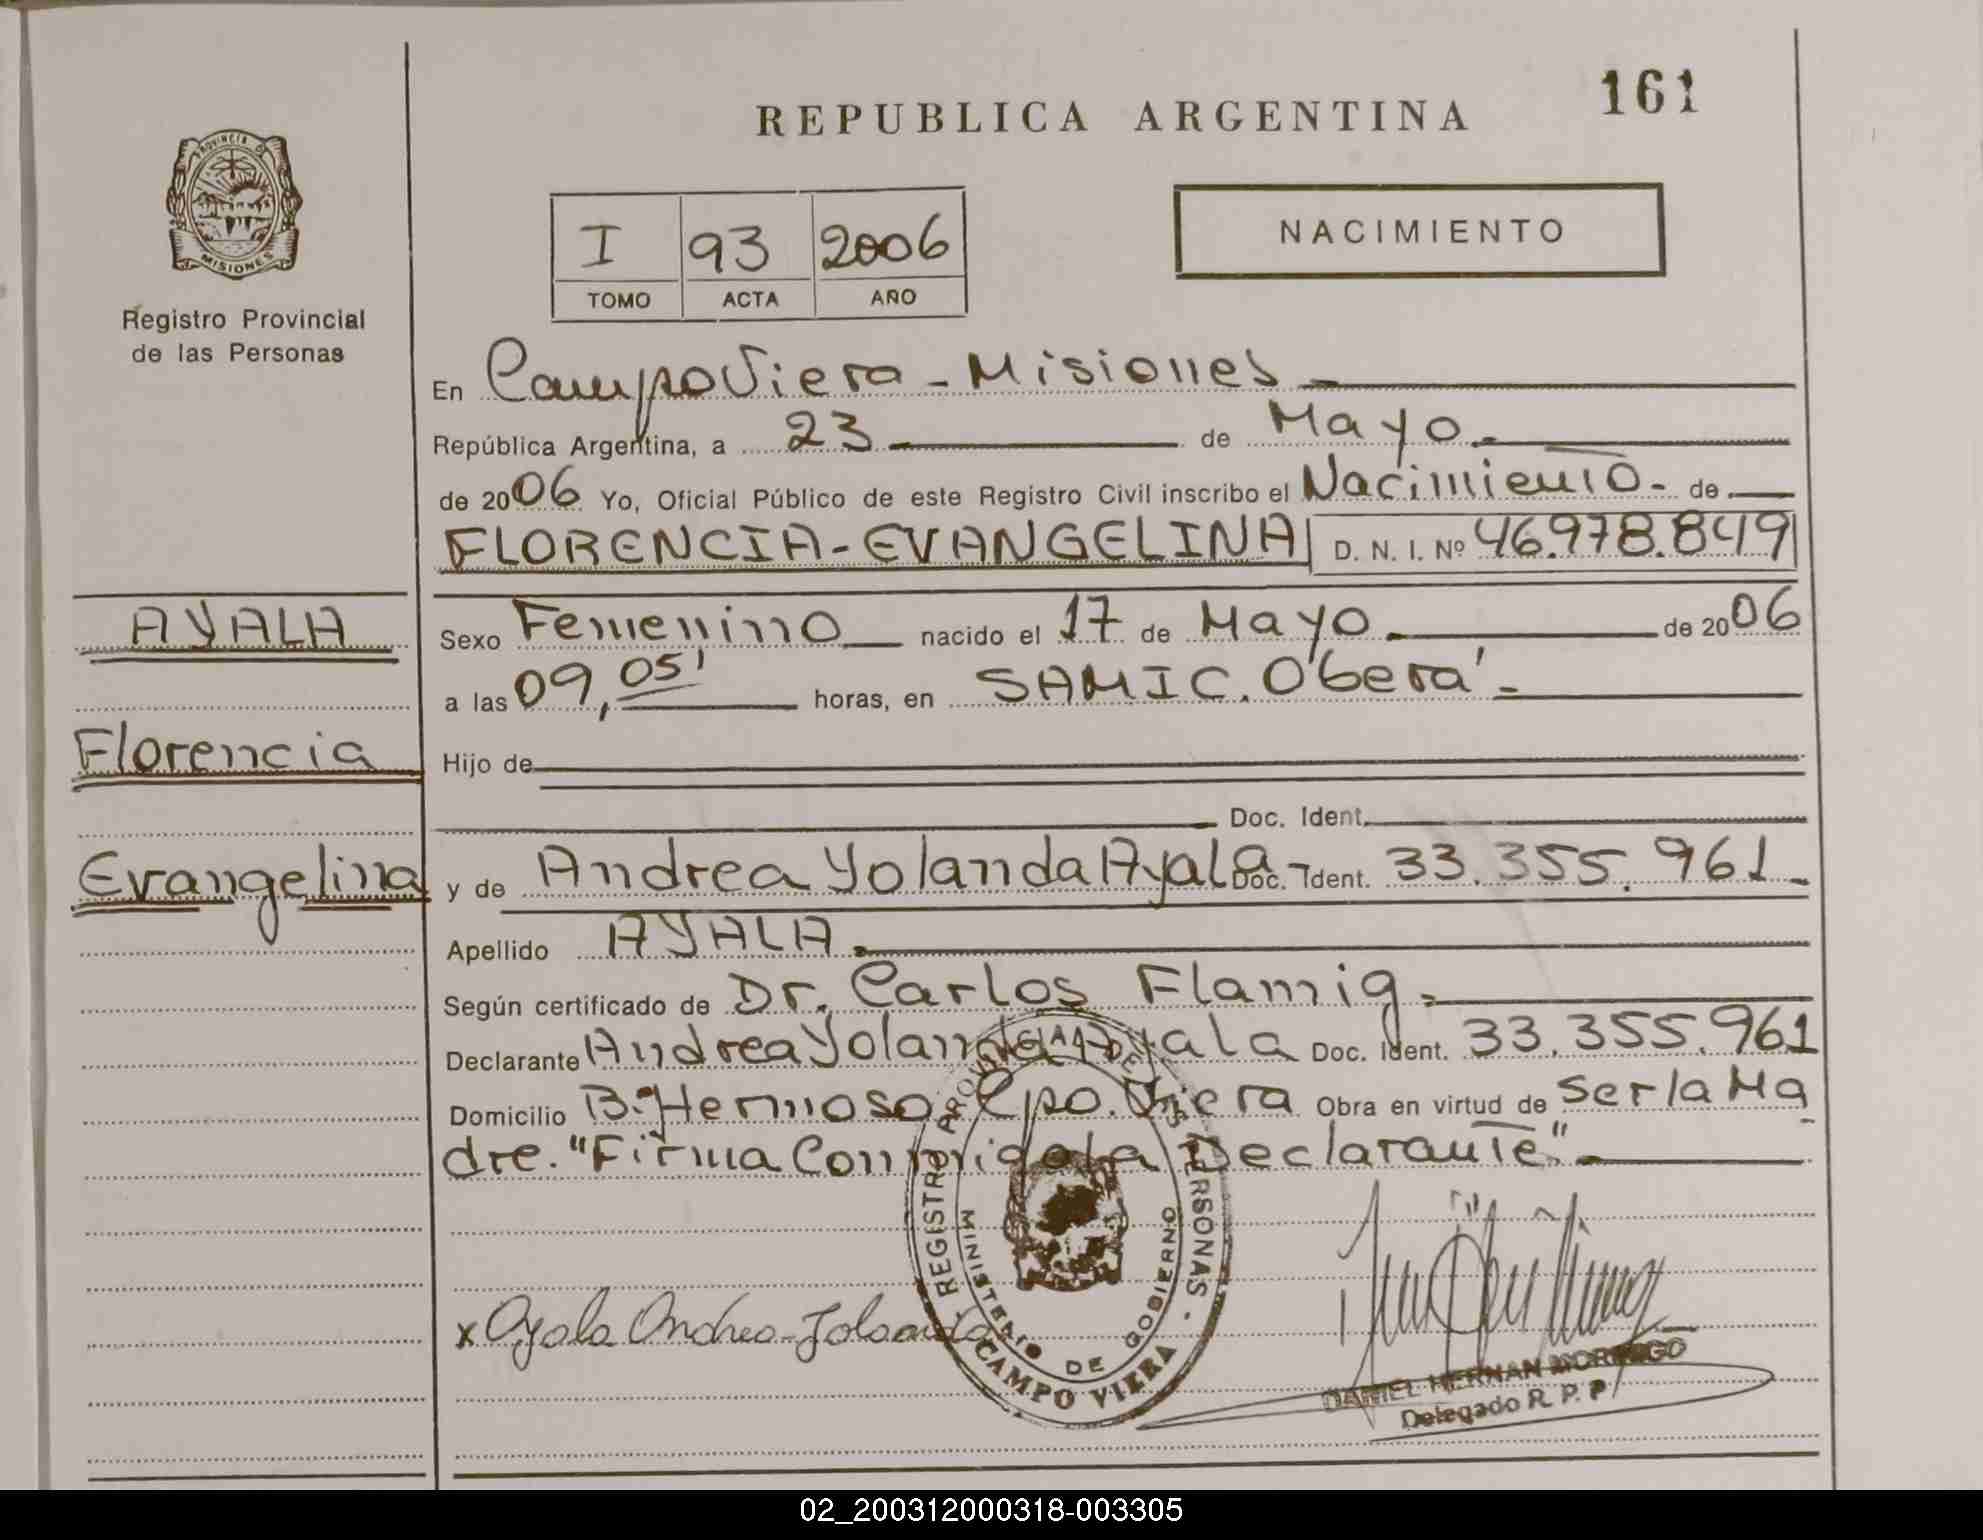 161
REPUBLICA ARGENTINA
PROVINCIA D
MISIONES
Registro Provincial
de las Personas
NACIMIENTO
I 93 2006
TOMO ACTA AÑO
En Campo Viera - Misiones -
República Argentina, a 23 de Mayo -
de 2006 Yo, Oficial Público de este Registro Civil inscribo el Nacimiento - de
FLORENCIA - EVANGELINA D. N. I. Nº 46.978.849
AYALA
Florencia
Evangelina
Sexo Femenino nacido el 17 de Mayo de 2006
a las 09,05' horas, en SAMIC. Oberá -
Hijo de
Doc. Ident.
y de Andrea Yolanda Ayala Doc. Ident. 33.355.961 -
Apellido AYALA.
Según certificado de Dr. Carlos Flamig -
Declarante Andrea Yolanda Ayala Doc. Ident. 33.355.961
Domicilio Bº Hermoso. Cpo. Viera Obra en virtud de Ser la Ma
dre. "Firma Conmigo la Declarante" -
REGISTRO PROVINCIAL DE LAS PERSONAS
MINISTERIO DE GOBIERNO
CAMPO VIERA
x Ayala Andrea Yolanda
DANIEL HERNAN
Delegado R. P. P
02_200312000318-003305